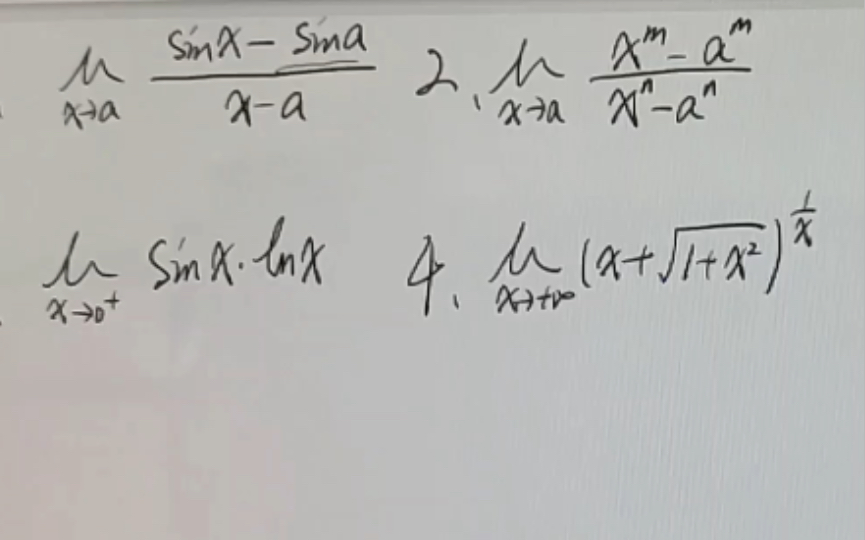 lim_{x→a} \frac{sinx - sina}{x-a} 2、lim_{x→a} \frac{x^m - a^m}{x^n - a^n}
lim_{x→0^+} sinx·lnx 4、lim_{x→+∞} (x+\sqrt{1+x^2})^{\frac{1}{x}}